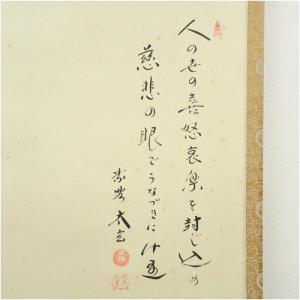 人の世の喜怒哀楽を封じ込め
慈悲の眼でうなづきに